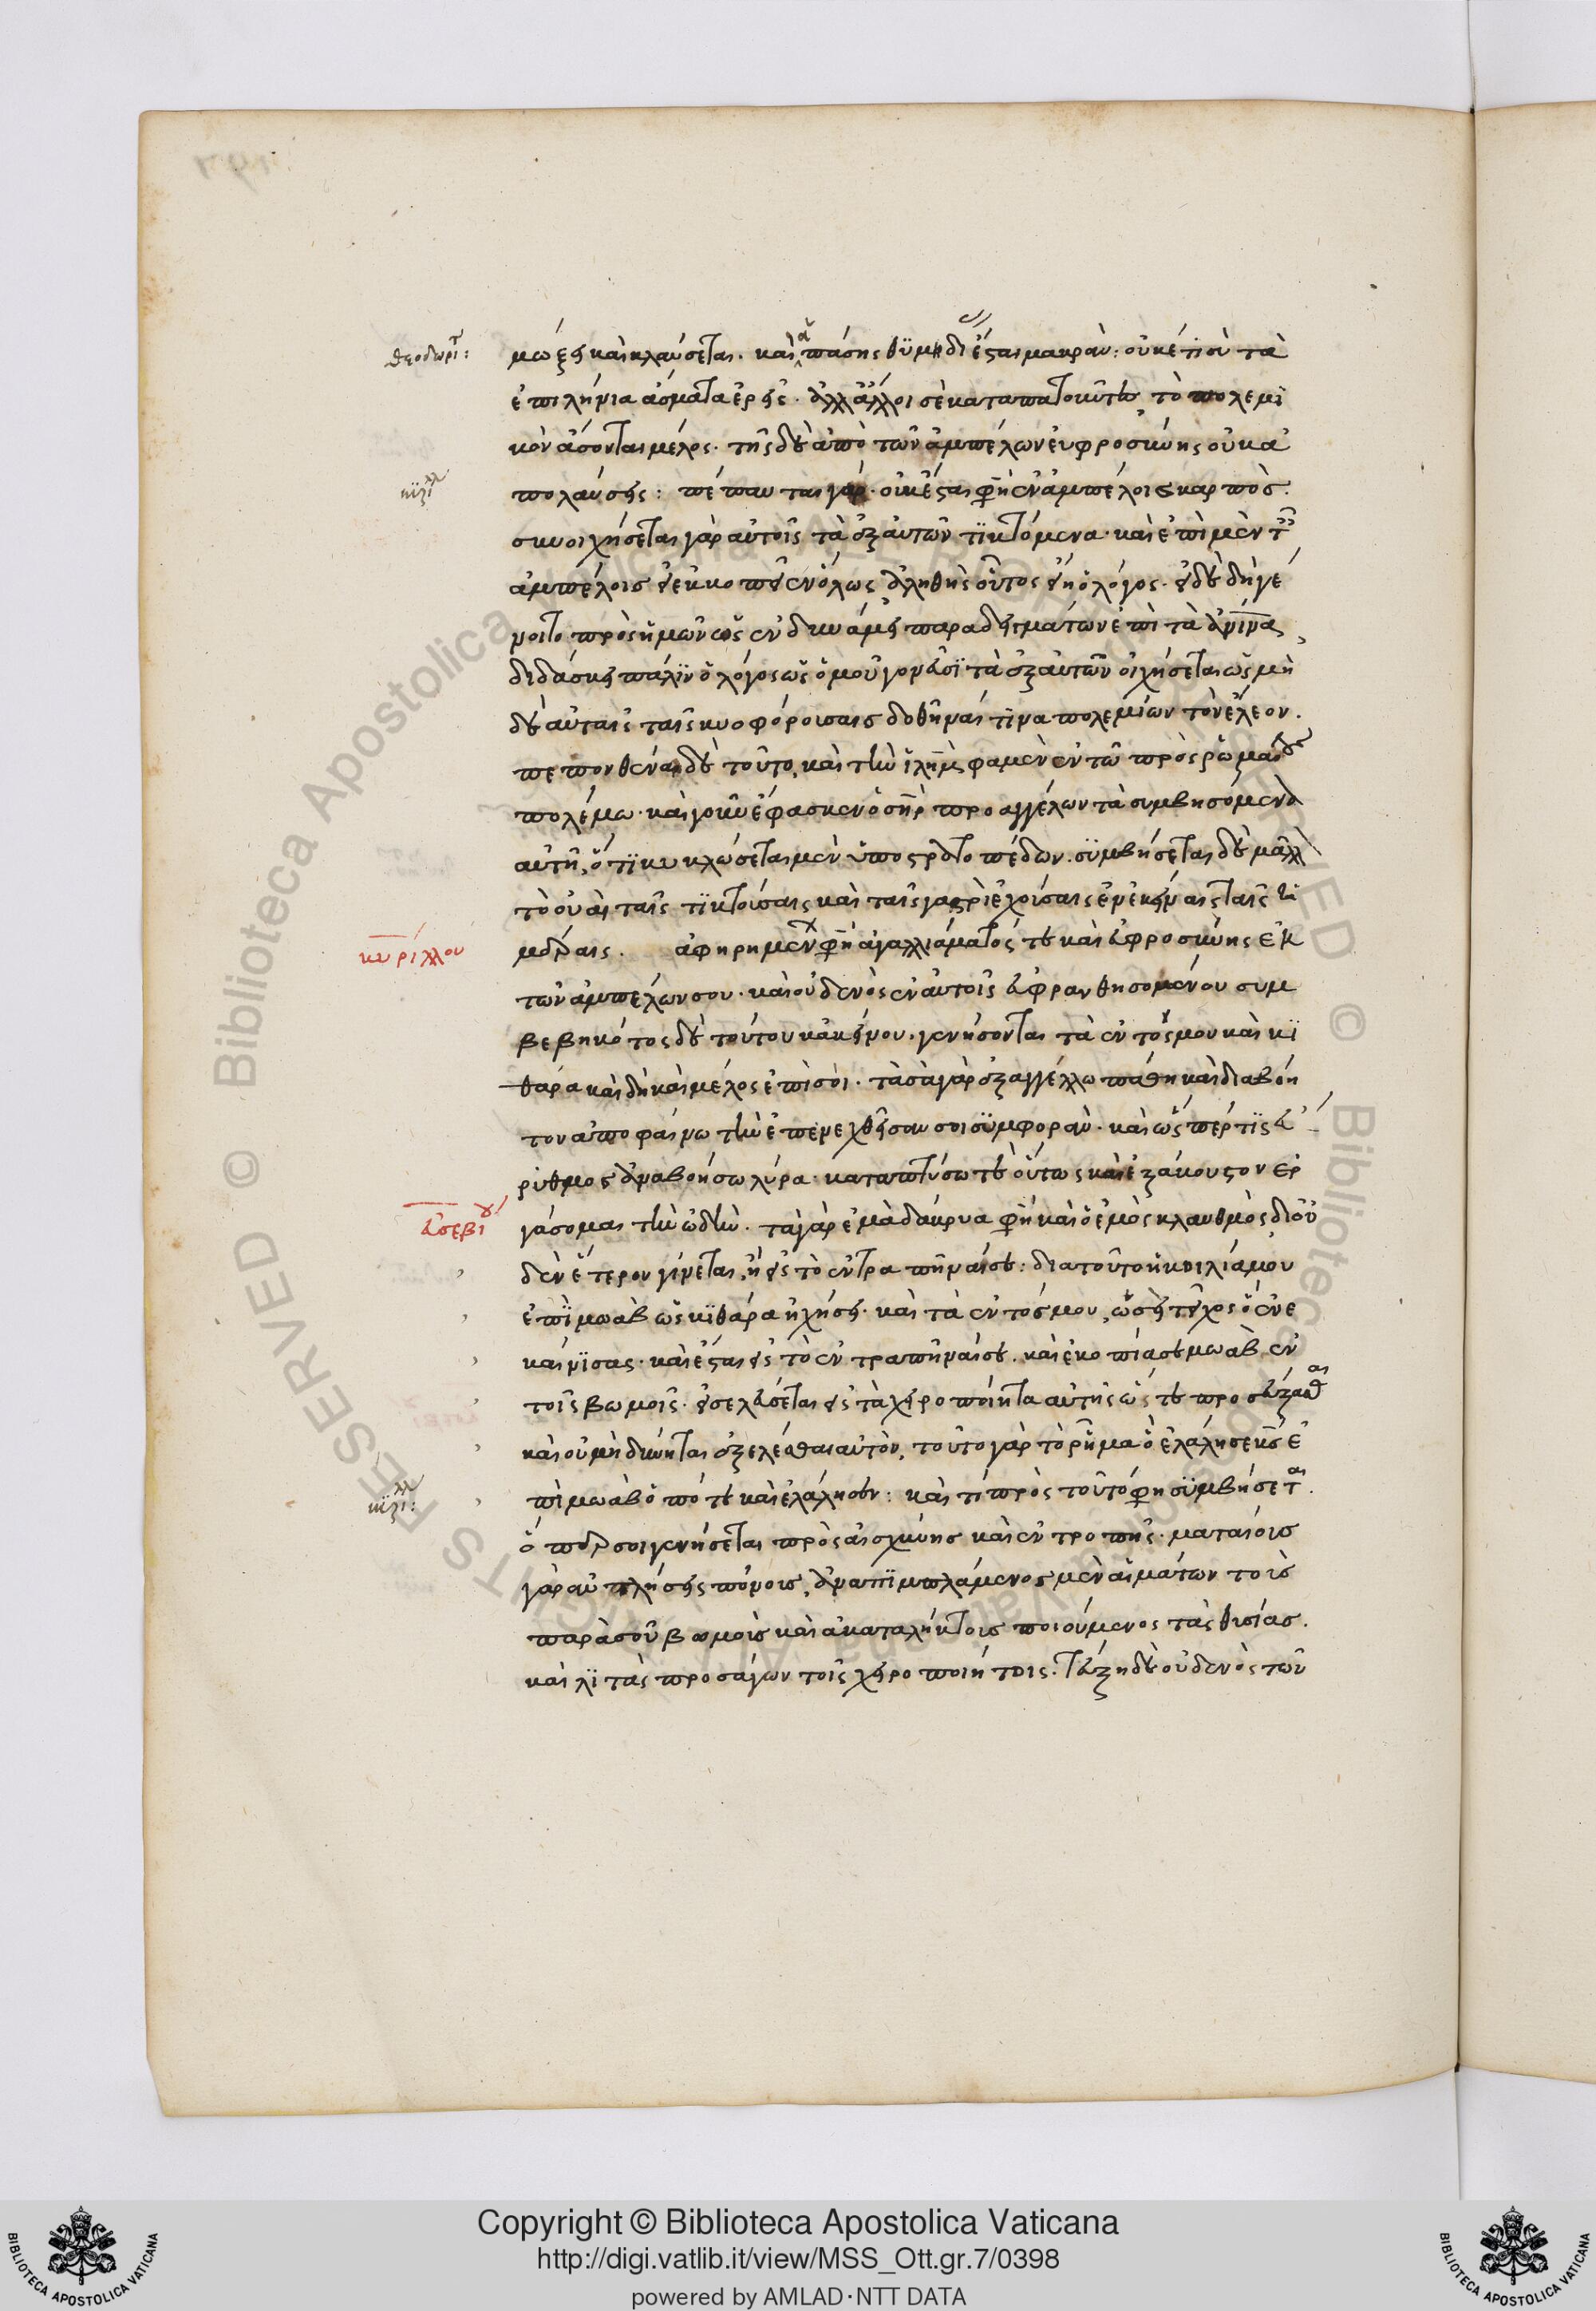 θεοδωρί: μώξεις καὶ κλαύσεται. καὶ ἀπάσης θυμηδίας ἔσται μακρὰν: οὐκέτι σὺ τὰ
ἐπιλήνια ἄσματα ἐρεῖς. ἀλλ' ἄλλοι σὲ καταπατοῦντες, τὸ πολεμι
κὸν ἄσονται μέλος. τῆς δὲ ἀπὸ τῶν ἀμπέλων εὐφροσύνης οὐκ ἀ
πολαύσεις: πέπαυται γάρ. οὐκ ἔσται φη ἐν ἀμπέλοις καρπὸς.
συνοιχήσεται γὰρ αὐτοῖς τὰ ἐξ αὐτῶν τϊκτόμενα. καὶ ἐπὶ μὲν τ
ἀμπέλοις εἰ ἐκκοπεῖεν ὅλως ἀληθὴς οὗτος εἴη ὁ λόγος. εἰ δὲ δὴ γέ
νοιτο πρὸς ἡμῶν ὡς ἐν δυνάμει παραδειγμάτων ἐπὶ τὰ ἀνινα,
διδάσκει πάλϊν ὁ λόγος ὡς ὁμοῦ γονεῦσϊ τὰ ἐξ αὐτῶν οἰχήσεται ὡς μὴ
δὲ αὐταῖς ταῖς κυοφόροισαις δοθῆναί τινα πολεμίων τὸν ἔλεον.
πεπονθέναι δὲ τοῦτο, καὶ τὴν ἱλημ φαμὲν ἐν τῶ πρὸς ῥωμαίους
πολέμω. καὶ γοῦν ἔφασκεν ὁ σηρ προαγγέλων τὰ συμβησόμενα
αὐτῆ, ὅτϊ κυκλώσεται μὲν ὑπὸ στρατοπέδων. σϋμβήσεται δὲ μᾶλλ
τὸ οὐαὶ ταῖς τϊκτούσαις καὶ ταῖς γαστρὶ ἐχούσαις ἐν ἐκείναις ταῖς ἡ
κυρίλλου μέραις. ἀφηρημένου φη ἀγαλλιάματός τε καὶ εὐφροσύνης ἐκ
τῶν ἀμπέλων σου. καὶ οὐδενὸς ἐν αὐτοῖς εὐφρανθησομένου συμ
βεβηκότος δὲ τούτου κἀκείνου. γενήσονται τὰ ἐντός μου καὶ κϊ
θάρα καὶ δὴ καὶ μέλος ἐπὶ σοί. τὰ σὰ γὰρ ἐξαγγέλλω πάθη καὶ διαβόη
τον ἀποφαίνω τὴν ἐπενεχθεῖσαν σοι σϋμφορὰν. καὶ ὥσπέρ τϊς εὔ
ρυθμος ἀναβοήσω λύρα. καταπτύσω τὲ οὕτως καὶ ἐξάκουστον ἐρ
εὐσεβίου γάσομαι τὴν ὠδὴν. τὰ γὰρ ἐμὰ δάκρυα φη καὶ ὁ ἐμὸς κλαυθμὸς δι' οὐ
δὲν ἕτερον γίνεται, ἢ εἰς τὸ ἐντραπῆναί σε: διατοῦτο ἡ κοιλία μου
ἐπὶ μωαβ ὡς κϊθάρα ἠχήσει. καὶ τὰ ἐντός μου, ὡσεὶ τεῖχος ὃ ἐνε
καίνϊσας. καὶ ἔσται εἰς τὸ ἐντραπῆναί σε. καὶ ἐκοπίασε μωαβ ἐν
τοῖς βωμοῖς. εἰσελεύσεται εἰς τὰ χειροποίητα αὐτῆς ὥστε προσεύξασθαι
καὶ οὐ μὴ δύνηται ἐξελέσθαι αὐτόν, τοῦτο γὰρ τὸ ῥῆμα ὃ ἐλάλησε κς ἐ
πὶ μωαβ ὁπότε καὶ ἐλάλησεν: καὶ τί πρὸς τοῦτό φη σϋμβήσεται.
ὅπερ σοι γενήσεται πρὸς αἰσχύνης καὶ ἐντροπῆς. ματαίοις
γὰρ αὖ πλήσεις πόνοις, ἀναπϊμπλάμενος μὲν αἱμάτων τοὶς
παρὰ σοῦ βωμοὶς καὶ ἀκαταλήκτοις ποιούμενος τὰς θυσίας.
καὶ λϊτὰς προσάγων τοῖς χειροποιήτοις. τεύξη δὲ οὐδενὸς τῶν
Copyright © Biblioteca Apostolica Vaticana
http://digi.vatlib.it/view/MSS_Ott.gr.7/0398
powered by AMLAD·NTT DATA
BIBLIOTECA APOSTOLICA VATICANA
BIBLIOTECA APOSTOLICA VATICANA